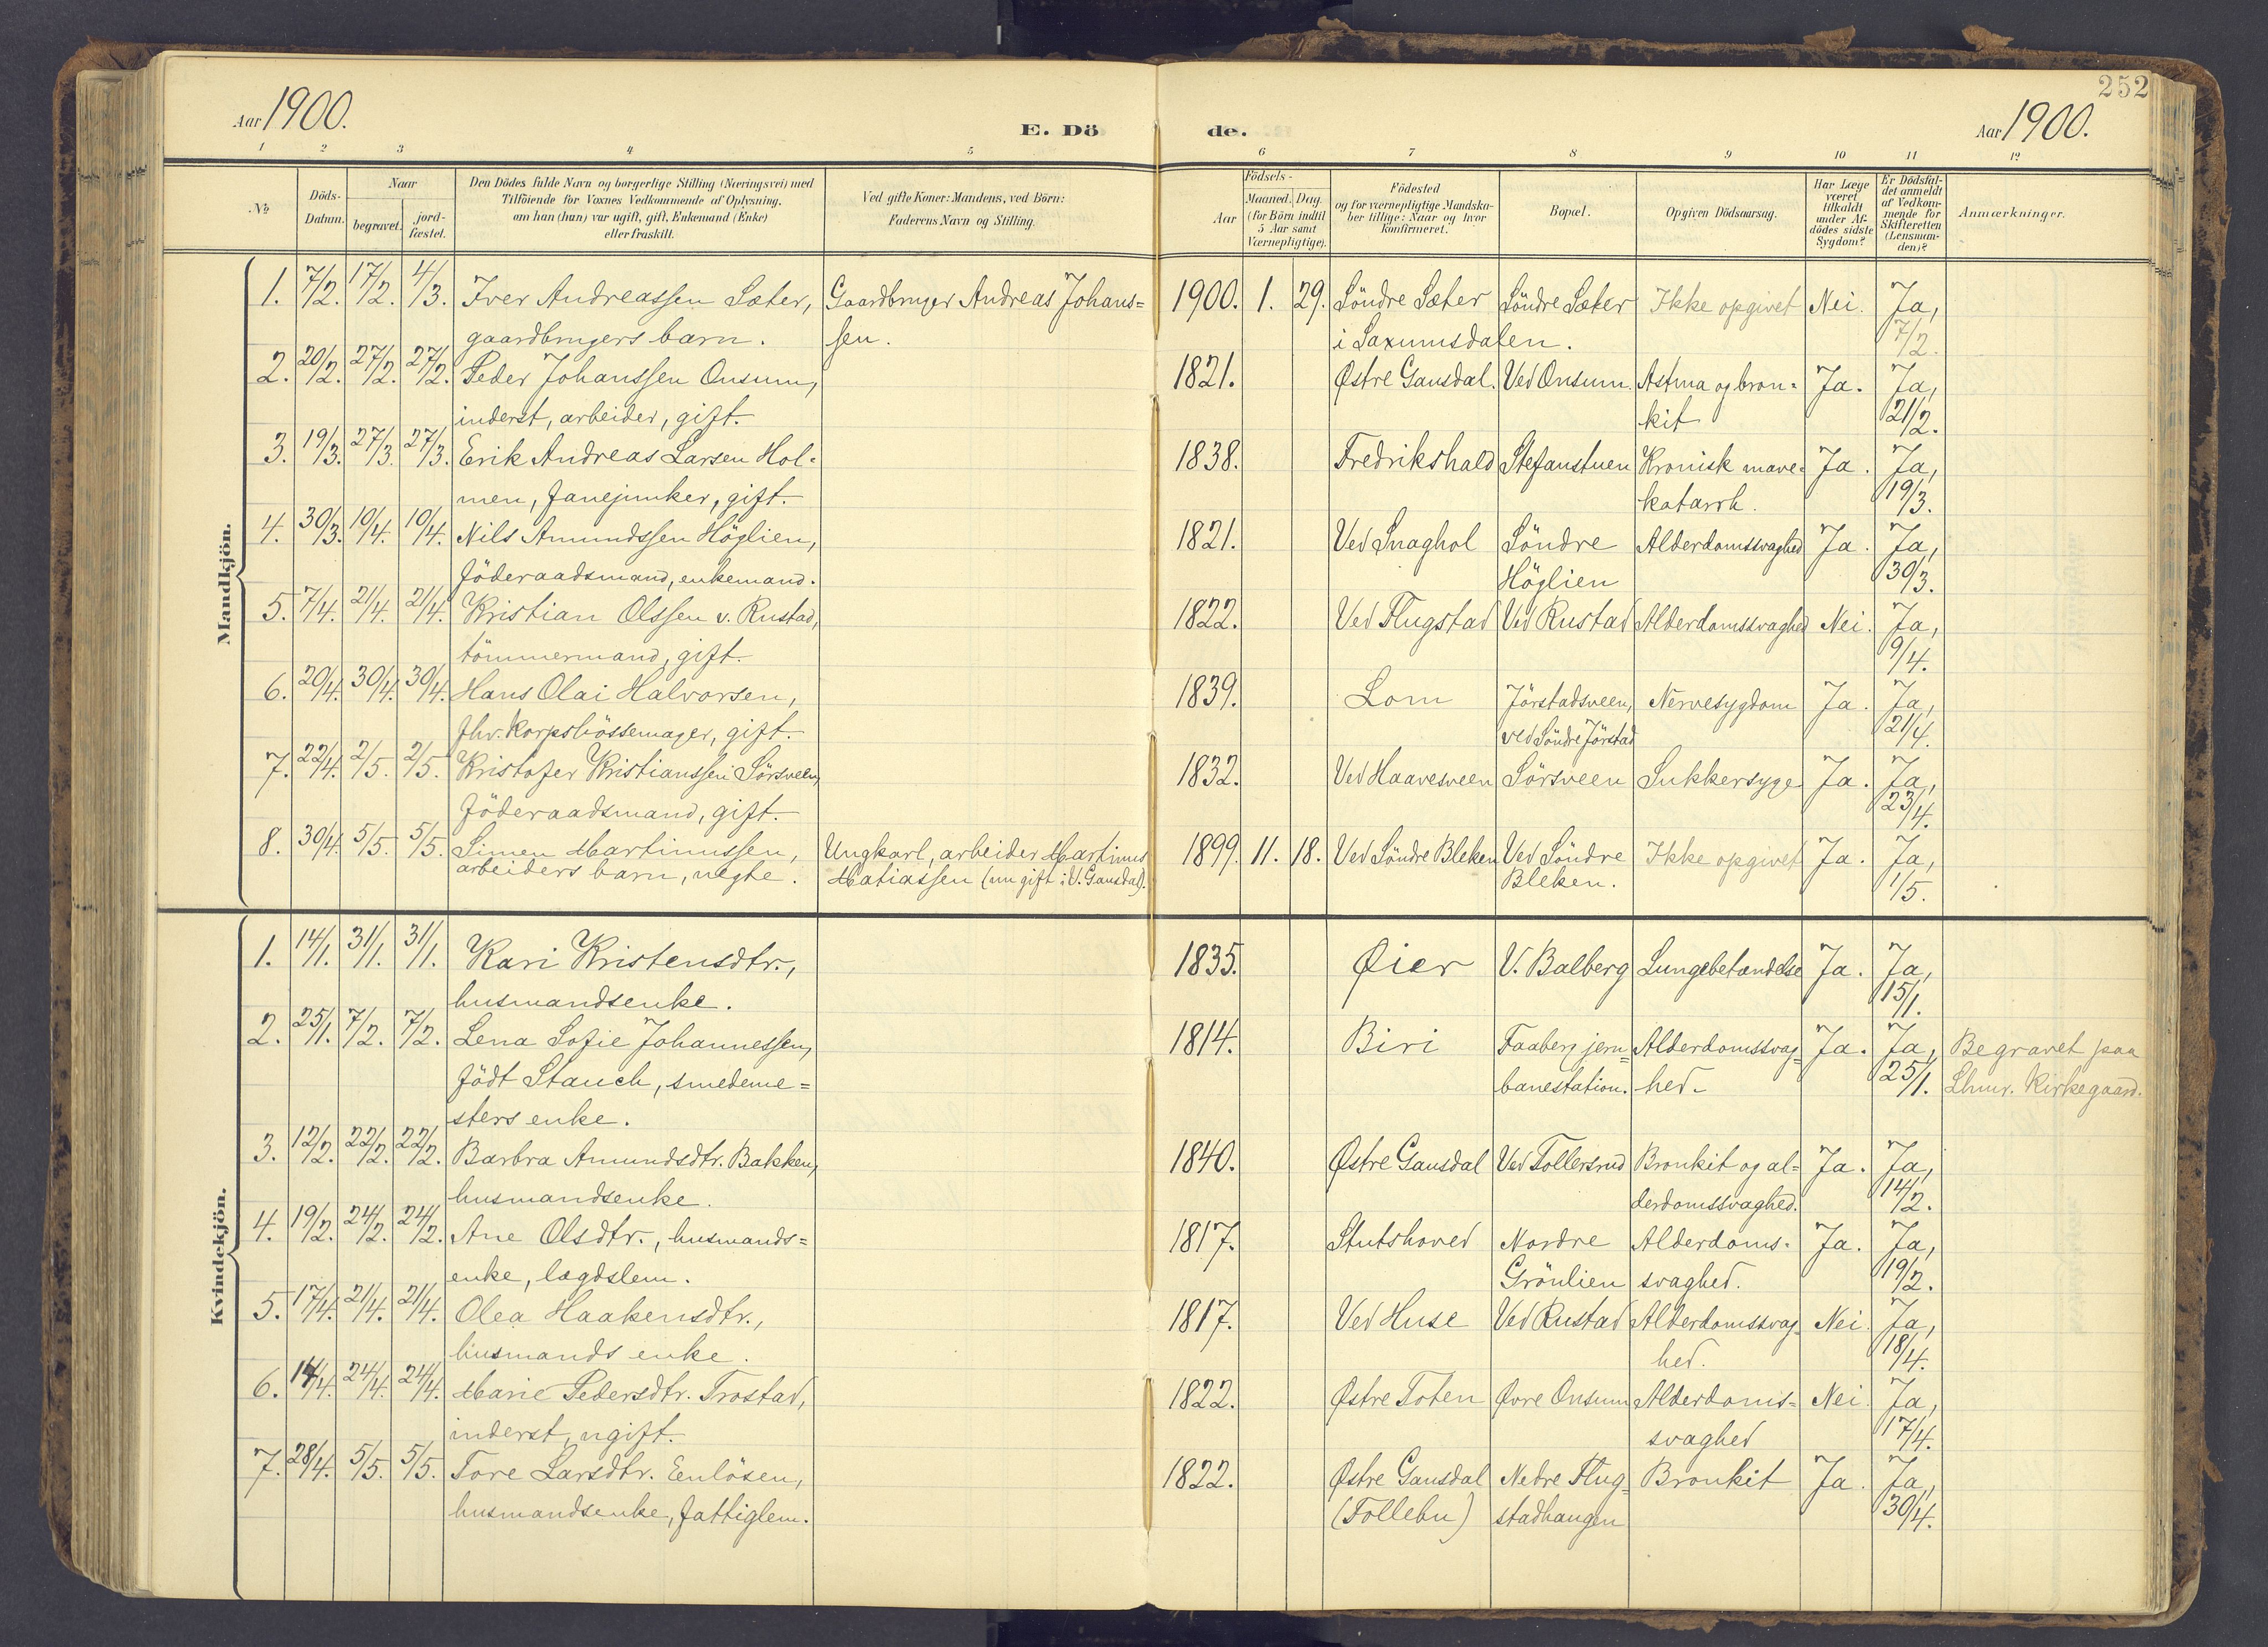 252
Aar 1900.
E. Dö de.
Aar 1900.
1 2 3 4 5 6 7 8 9 10 11 12
No
Döds-Datum.
Naar
begravet.
jord-fæstet.
Den Dödes fulde Navn og borgerlige Stilling (Næringsvei) med
Tilföiende for Voxnes Vedkommende af Oplysning,
om han (hun) var ugift, gift, Enkemand (Enke)
eller fraskilt.
Ved gifte Koner: Mandens, ved Börn:
Faderens Navn og Stilling.
Födsels-
Aar
Maaned. Dag.
(for Börn indtil
5 Aar samt
Værnepligtige).
Födested
og for værnepligtige Mandska-
ber tillige: Naar og hvor
konfirmeret.
Bopæl.
Opgiven Dödsaarsag.
Har Læge
været
tilkaldt
under Af-
dödes sidste
Sygdom?
Er Dödsfal-
det anmeldt
af Vedkom-
mende for
Skifteretten
(Lensman-
den)?
Anmærkninger.
Mandkjön.
1. 7/2. 17/2. 4/3. Iver Andreassen Sæter, Gaardbruger Andreas Johans- 1900. 1. 29. Söndre Sæter Söndre Sæter Ikke opgivet Nei. Ja,
gaardbrugers barn. sen. i Saxumsdalen. 7/2.
2. 20/2. 27/2. 27/2. Peder Johanssen Onsum, 1821. Østre Gausdal. Ved Onsum. Astma og bron- Ja. Ja,
inderst, arbeider, gift. kit 21/2.
3. 19/3. 27/3. 27/3. Erik Andreas Larsen Hol- 1838. Fredrikshald Stefanstuen Kronisk mave- Ja. Ja,
men, fanejunker, gift. katarrh. 19/3.
4. 30/3. 10/4. 10/4. Nils Amundssen Höglien, 1821. Ved Snaghol Söndre Alderdomssvaghed Ja. Ja,
föderaadsmand, enkemand. Höglien 30/3.
5. 7/4. 21/4. 21/4. Kristian Olssen v. Rustad, 1822. Ved Flugstad Ved Rustad Alderdomssvaghed Nei. Ja,
tömmermand, gift. 9/4.
6. 20/4. 30/4. 30/4. Hans Olai Halvorsen, 1839. Lom Jörstadsveen, Nervesygdom Ja. Ja,
fhv. korpsbössemager, gift. ved Söndre Jörstad 21/4.
7. 22/4. 2/5. 2/5. Kristofer Kristianssen Sörsveen, 1832. Ved Haavesveen Sörsveen Sukkersyge Ja. Ja,
föderaadsmand, gift. 23/4.
8. 30/4. 5/5. 5/5. Simen Martinussen, Ungkarl, arbeider Martinus 1899. 11. 18. Ved Söndre Bleken Ved Söndre Ikke opgivet Ja. Ja,
arbeiders barn, uegte. Matiassen (nu gift i V. Gausdal). Bleken. 1/5.
Kvindekjön.
1. 14/1. 31/1. 31/1. Kari Kristensdtr., 1835. Øier V. Balberg Lungebetændelse Ja. Ja,
husmandsenke. 15/1.
2. 25/1. 7/2. 7/2. Lena Sofie Johannessen, 1814. Biri Faaberg jern- Alderdomssvag- Ja. Ja, Begravet paa
födt Stauch, smedeme- banestation. hed. 25/1. Lhmr. Kirkegaard.
sters enke.
3. 12/2. 22/2. 22/2. Barbra Amundsdtr. Bakken, 1840. Østre Gausdal Ved Tollersrud Bronkit og al- Ja. Ja,
husmandsenke. derdomssvaghed. 14/2.
4. 19/2. 24/2. 24/2. Ane Olsdtr., husmands- 1817. Stutshoved Nordre Alderdoms- Ja. Ja,
enke, lægdslem. Grönlien svaghed. 19/2.
5. 17/4. 21/4. 21/4. Olea Haakensdtr., 1817. Ved Huse Ved Rustad Alderdomssvag- Nei. Ja,
husmands enke. hed. 18/4.
6. 14/4. 24/4. 24/4. Marie Pedersdtr. Trostad, 1822. Østre Toten Øvre Onsum Alderdoms- Nei. Ja,
inderst, ugift. svaghed 17/4.
7. 28/4. 5/5. 5/5. Tore Larsdtr. Eenlösen, 1822. Østre Gausdal Nedre Flug- Bronkit Ja. Ja,
husmandsenke, fattiglem. (Follebu) stadhaugen 30/4.